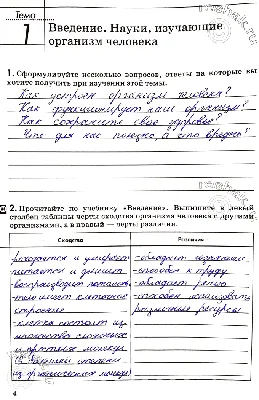 Тема
1
Введение. Науки, изучающие
организм человека
1. Сформулируйте несколько вопросов, ответы на которые вы
хотите получить при изучении этой темы.
Как устроен организм человека?
Как функционирует наш организм?
Как сохранить свое здоровье?
Что для нас полезно, а что вредно?
2. Прочитайте по учебнику «Введение». Выпишите в левый
столбец таблицы черты сходства организма человека с другими
организмами, а в правый — черты различия.
Сходство
Различия
рождаются и умирают
питаются и дышат
воспроизводит потомство
имеют клеточное
строение
-клетка состоит из
множества сложных
и простых молекул
из органических
-обладает
-способен к труду
-обладает речью
-способен использовать
различные ресурсы
4